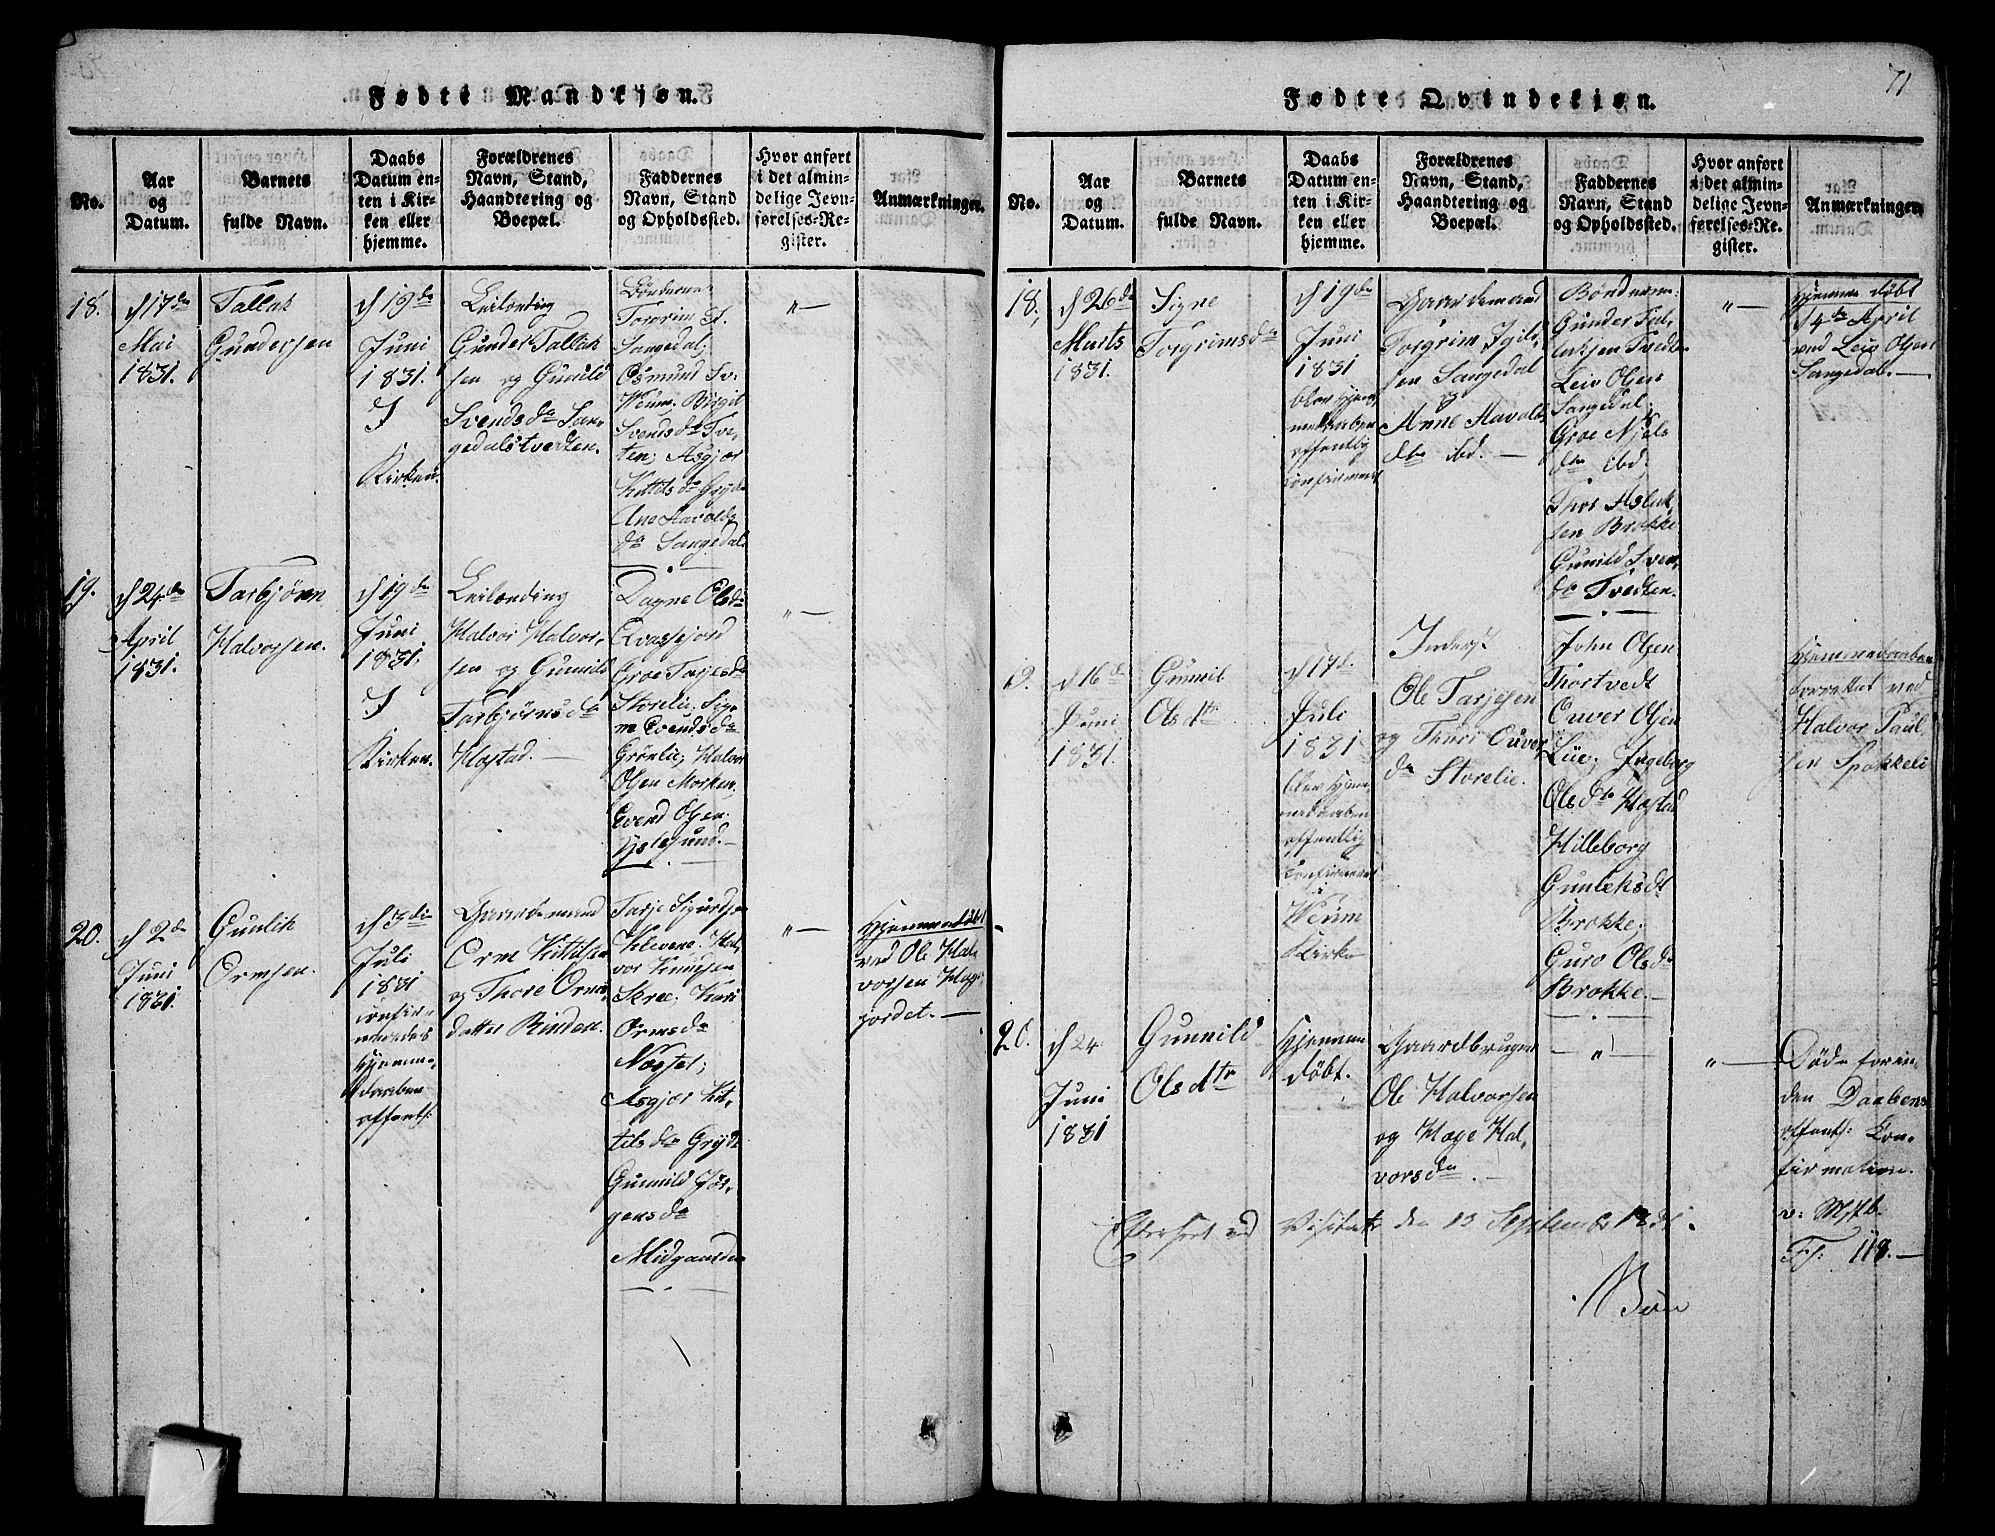 Fødte Mandkjøn.
No.
Aar
og
Datum.
Barnets
fulde Navn.
Daabs
Datum en-
ten i Kir-
ken eller
hjemme.
Forældrenes
Navn, Stand,
Haandtering og
Boepæl.
Faddernes
Navn, Stand
og Opholdssted.
Hvor anført
i det almin-
delige Jevn-
førelses-Re-
gister.
Anmærkninger.
18.
d 17de
Mai
1831.
Tallak
Gundersen
d 19de
Juni
1831.
I
Kirken.
Leilænding
Gunder Tallak
sen og Gunild
Svendsda San-
gedalstvedten.
Bønderne
Torgrim
Sangedal,
Osmund Sv.
Weum. Birgit
Svendsda Tve-
ten; Asgjær
Kittilsda Gryde
Ane Aavolds
da Sangedal.
"—
19.
d 24de
April
1831.
Tarbjørn
Halvorsen.
d 19de
Juni
1831.
I
Kirken.
Leilænding
Halvor Halvor-
sen og Gunild
Tarbjørnsda
Hæstad.—
Dagne Olsda
Qvassfjord
Groe Tarjesda
Storelie. Sig-
ne Evendsda
Grønlie; Halvor
Olsen Morken,
Evend Olsen
"—
20.
d 2de
Juni
1831.
Gunlik
Ormsen.
d 3die
Juli
1831
confir-
meredes
Hjemme-
daaben
offentl.
Gaardemand
Orm Kittilsen
og Thore Orms
datter Rinden.
Tarje Sigurdsen
Klevene. Hal-
vor Knudsen
Skree; Kari
Ormsda
Nægset;
Asgjær Kit-
tilsda Gryde
Gunnild Jør-
gensda
Midgaarden
"—
Hjemmedøbt
ved Ole Hal-
vorsen Hage-
jordet.—
71
Fødte Qvindekjøn.
No.
Aar
og
Datum.
Barnets
fulde Navn.
Daabs
Datum en-
ten i Kir-
ken eller
hjemme.
Forældrenes
Navn, Stand,
Haandtering og
Boepæl.
Faddernes
Navn, Stand
og Opholdssted.
Hvor anført
i det almin-
delige Jevn-
førelses-Re-
gister.
Anmærkninger
18.
d 26de
Marts
1831.
Signe
Torgrimsda
d 19de
Juni
1831
blev Hjem-
medaaben
offentlig
confirmeret
Gaardemand
Torgrim Igils-
sen Sangedal
og
Anne Aavolds
dtr ibd.—
Bønderne:
Gunder Tal-
laksen Tvedten
Leiv Olsen
Sangedal;
Groe Njels
dtr ibd;
Thor Aslak
sen Brokke
Gunild Sven
da Tvedten.
"—
Hjemme døbt
4de April
ved Leiv Olsen
Sangedal.—
9.
d 16de
Juni
1831.
Gunnil
Olsdtr
d 17de
Juli
1831
blev Hjem-
medaaben
offentlig
confirmeret
i
Weum
Kirke
Inders.
Ole Tarjesen
og Thuri Ouvers
da Storelie.
John Olsen
Thortvedt
Ouver Olsen
Lüe; Ingeborg
Olsdtr Hæstad
Hilleborg
Gunleksdt
Brokke;
Guro Olsda
Brokke.—
Hjemmedaaben
forrettet ved
Halvor Paul-
sen Spokkeli
20.
d 24
Juni
1831
Gunnild
Olsdtr
Hjemme
døbt.
Gaardbruger
Ole Halvorsen
og Hæge Hal-
vorsda.—
—"—
"—
Døde forin-
den Daabens
offentl: Con-
firmation.
v: Mstb.
F: 118.—
Efterseet ved Visitats den 13 September 1831.